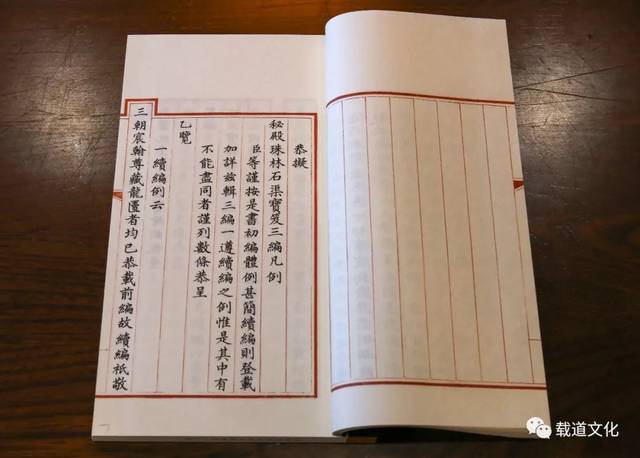 恭擬
秘殿珠林石渠寶笈三編凡例
臣等謹按是書初編體例甚簡續編則登載
加詳茲輯三編一遵續編之例惟是其中有
不能盡同者謹列數條恭呈
乙覽
一續編例云
三朝宸翰尊藏龍匱者均已恭載前編故續編祇敬
载道文化